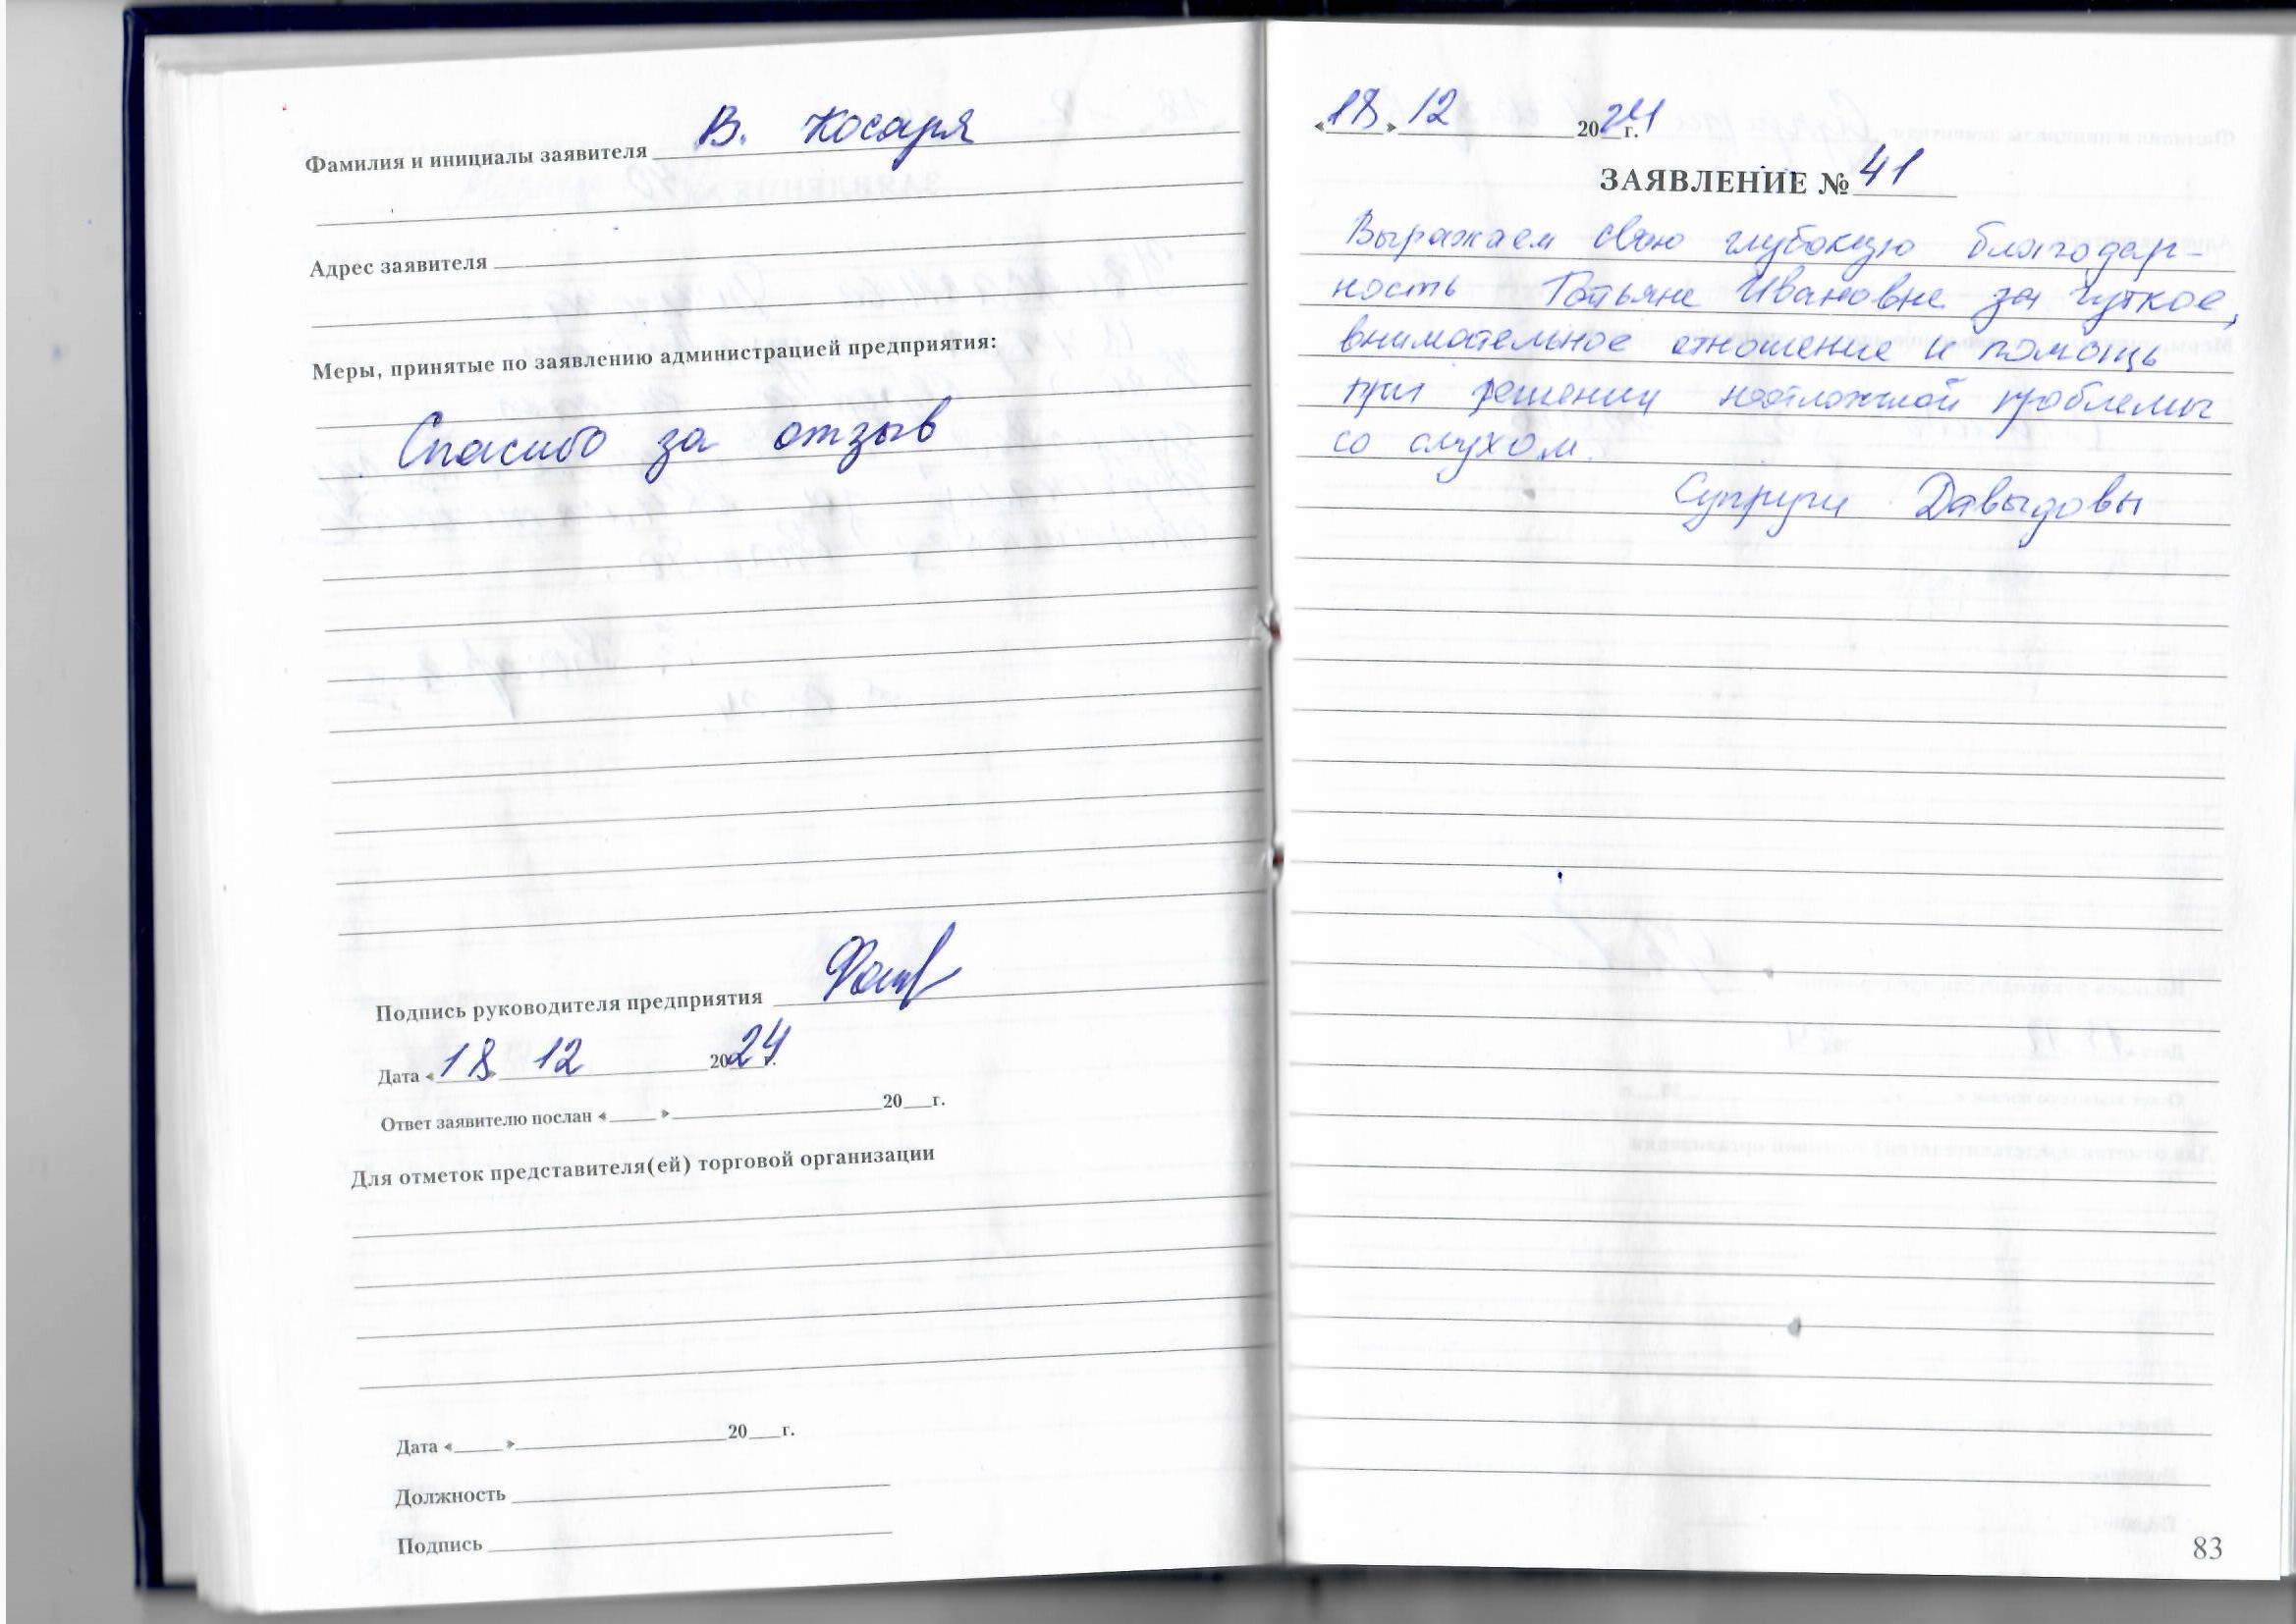 Фамилия и инициалы заявителя В. Косаря
Адрес заявителя
Меры, принятые по заявлению администрацией предприятия:
Спасибо за отзыв
Подпись руководителя предприятия
Дата «18» 12 2024 г.
Ответ заявителю послан «___» ___ 20__г.
Для отметок представителя(ей) торговой организации
Дата «___» ___ 20__г.
Должность
Подпись
«18» 12 2024 г.
ЗАЯВЛЕНИЕ № 41
Выражаем свою глубокую благодар-
ность Татьяне Ивановне за чуткое,
внимательное отношение и помощь
при решении неотложной проблемы
со слухом.
Супруги Давыдовы
83